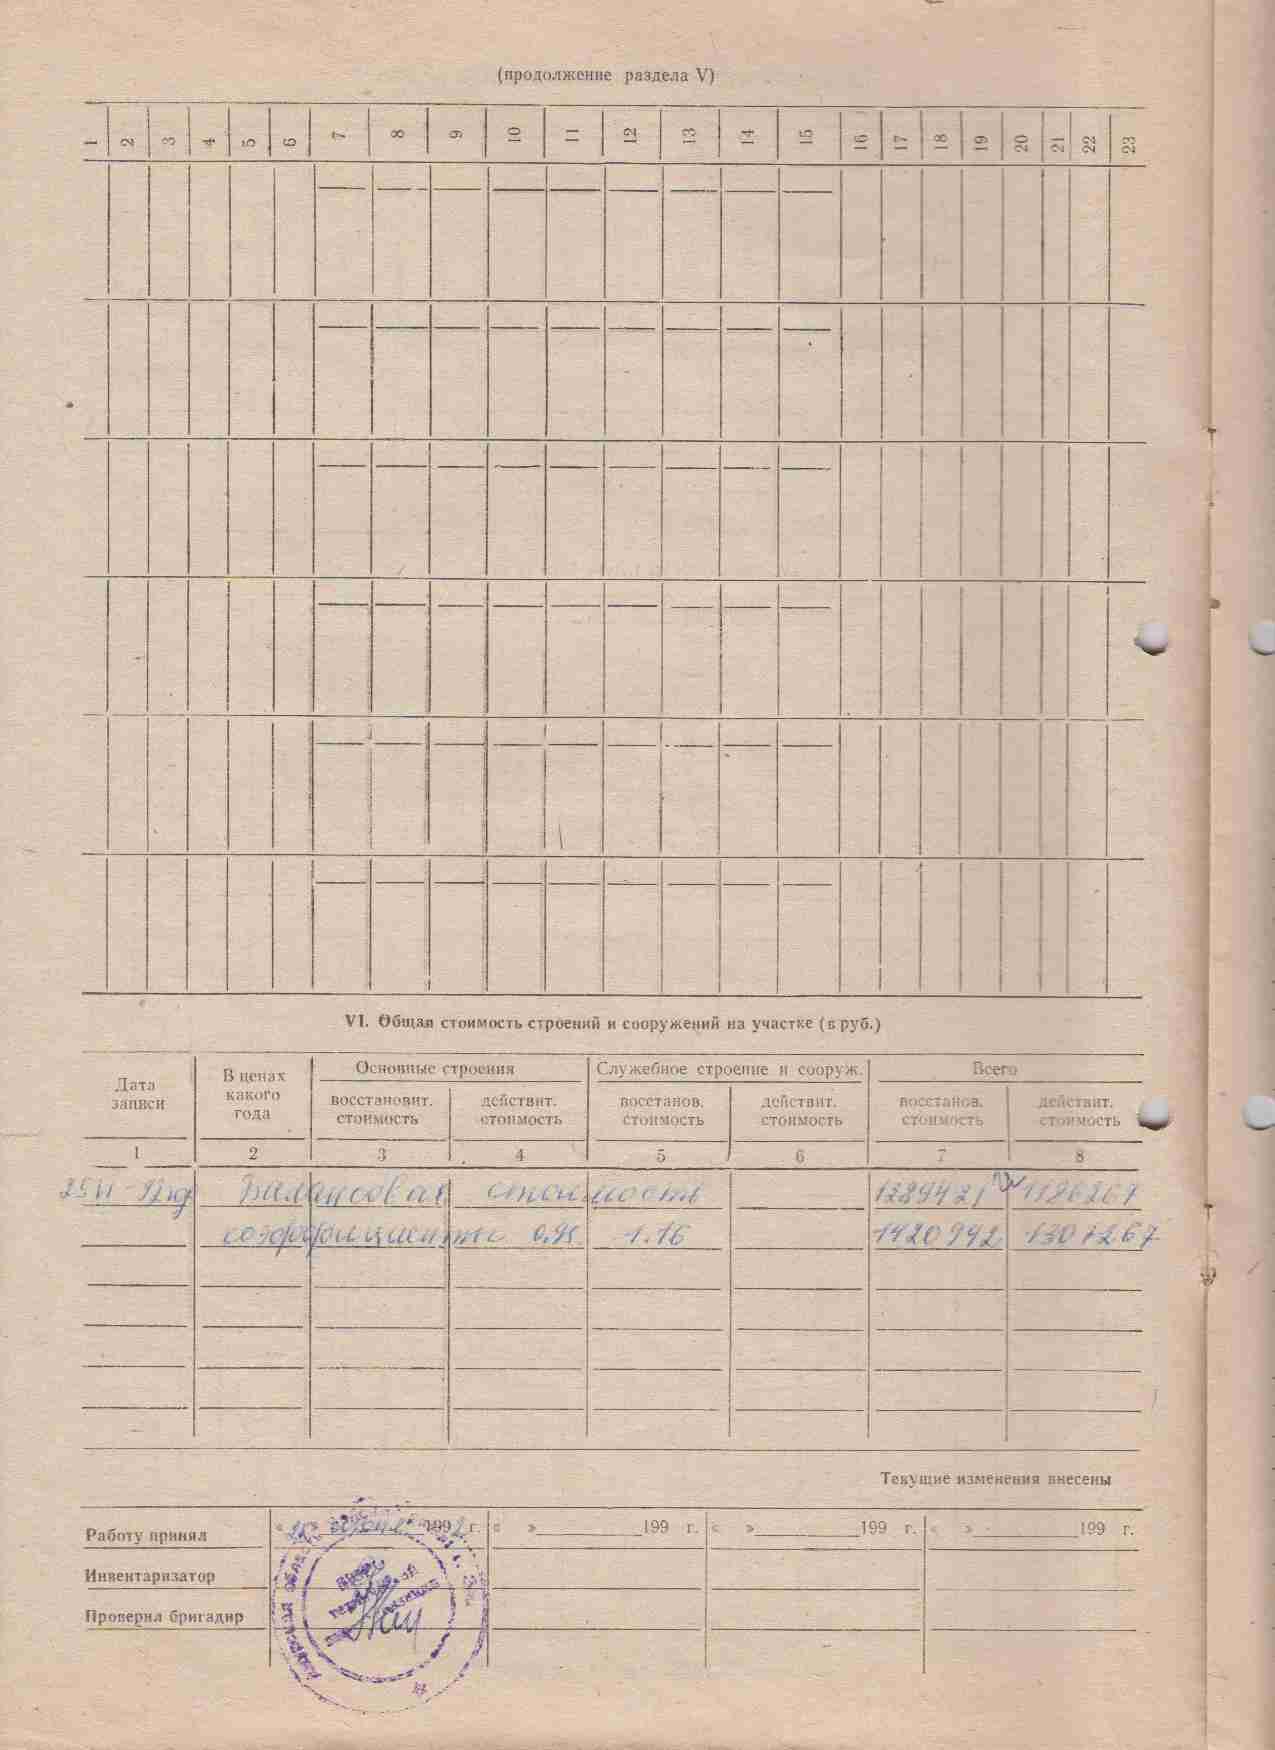 (продолжение раздела V)
1 2 3 4 5 6 7 8 9 10 11 12 13 14 15 16 17 18 19 20 21 22 23
VI. Общая стоимость строений и сооружений на участке (в руб.)
Дата записи
В ценах какого года
Основные строения
Служебное строение и сооруж.
Всего
восстановит. стоимость
действит. стоимость
восстанов. стоимость
действит. стоимость
восстанов. стоимость
действит. стоимость
1 2 3 4 5 6 7 8
Балансовая стоимость 1289421 1186267
коэффициенты 0.95 1.16 1420942 1307267
Текущие изменения внесены
Работу принял
« » 199 г. « » 199 г. « » 199 г. « » 199 г.
Инвентаризатор
Проверил бригадир